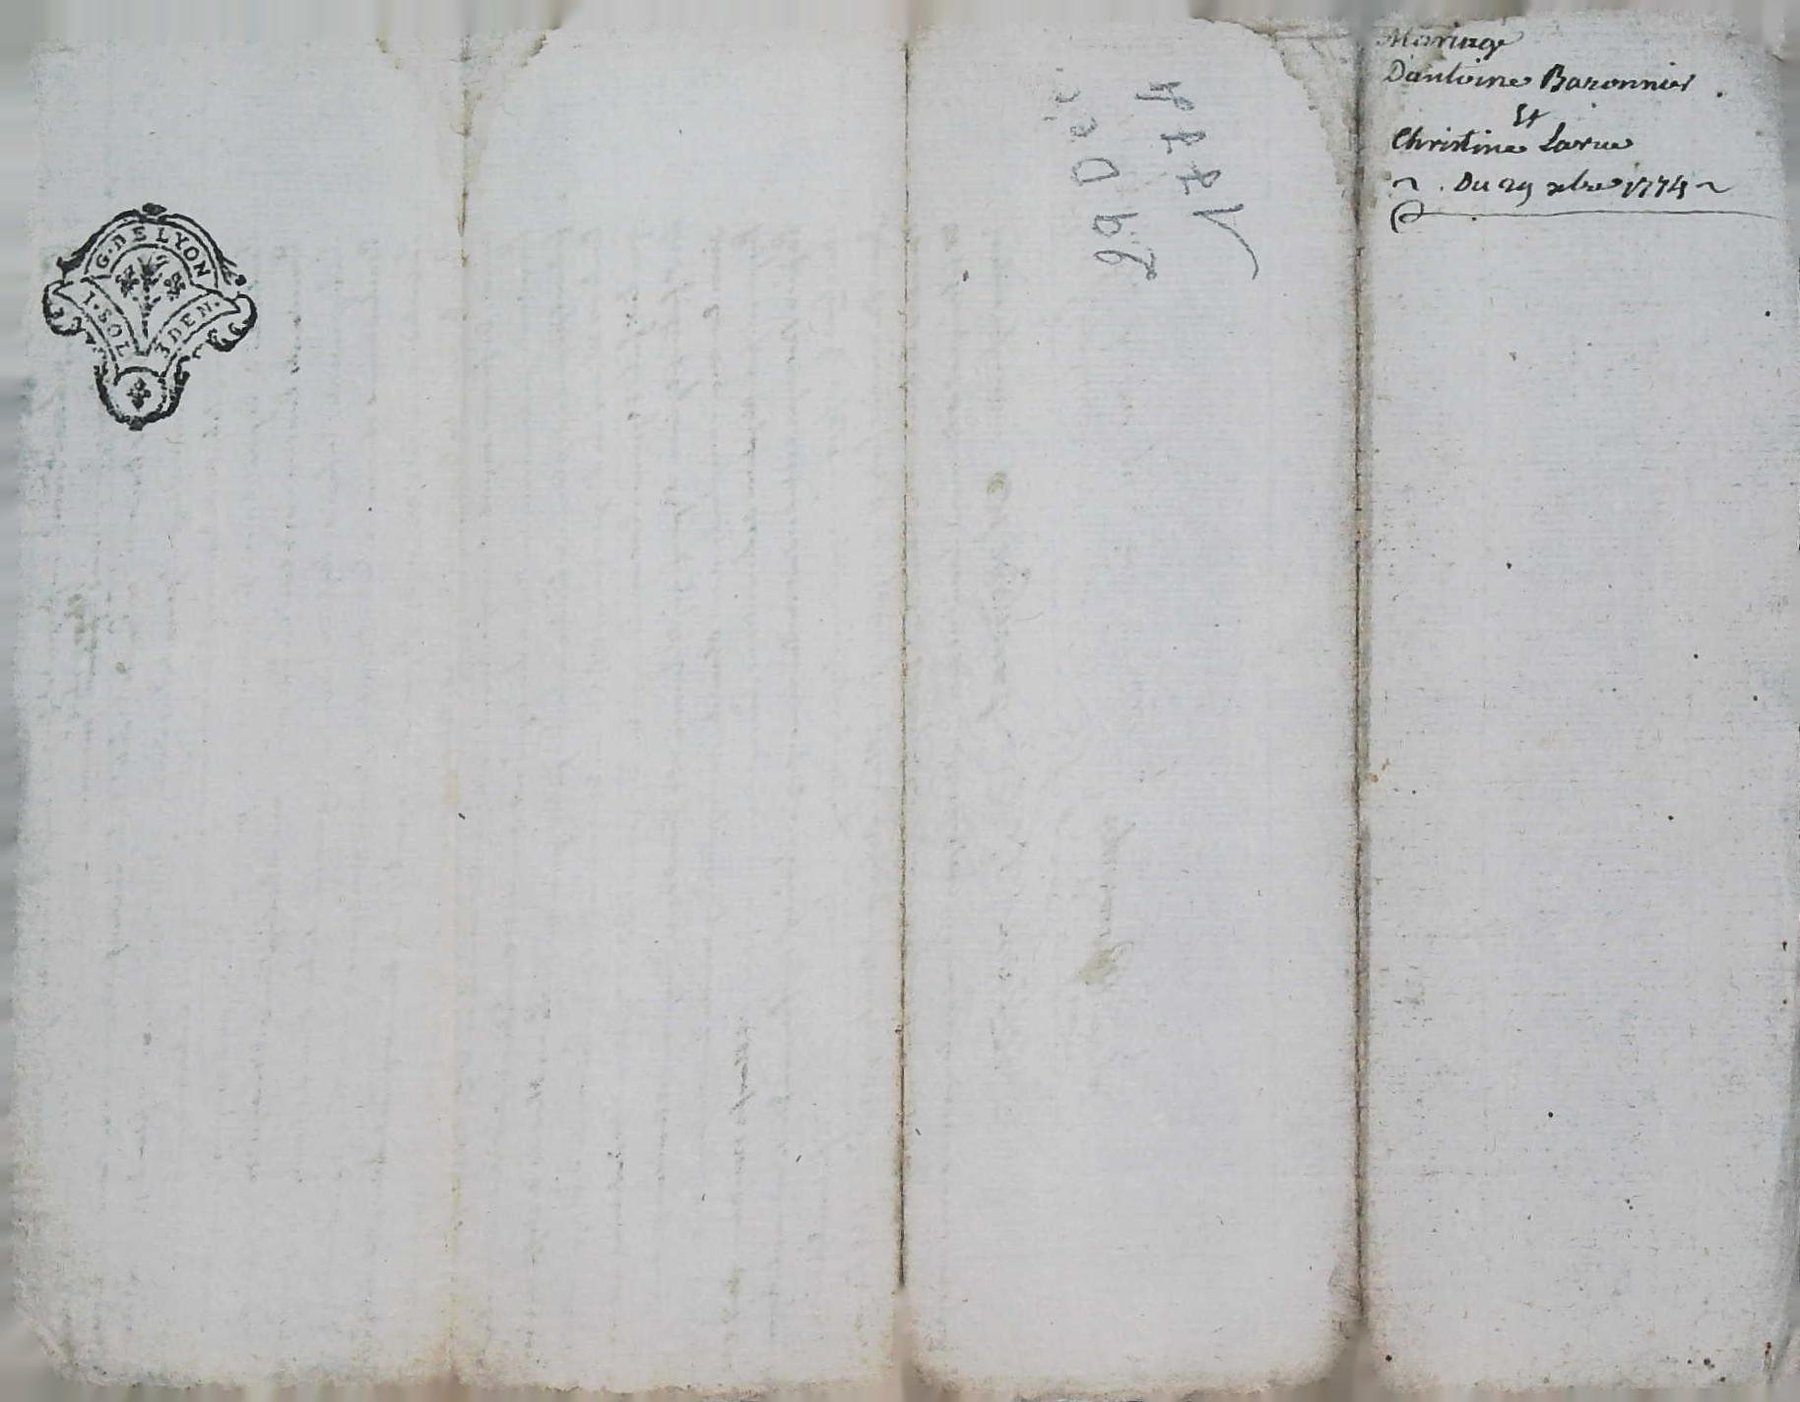 G. DE LYON
1. SOL 3 DEN.
1774
29 Dbre
Mariage
Dantoine Baronnier
Et
Christine Larue
~ . Du 29 xbre 1774 ~